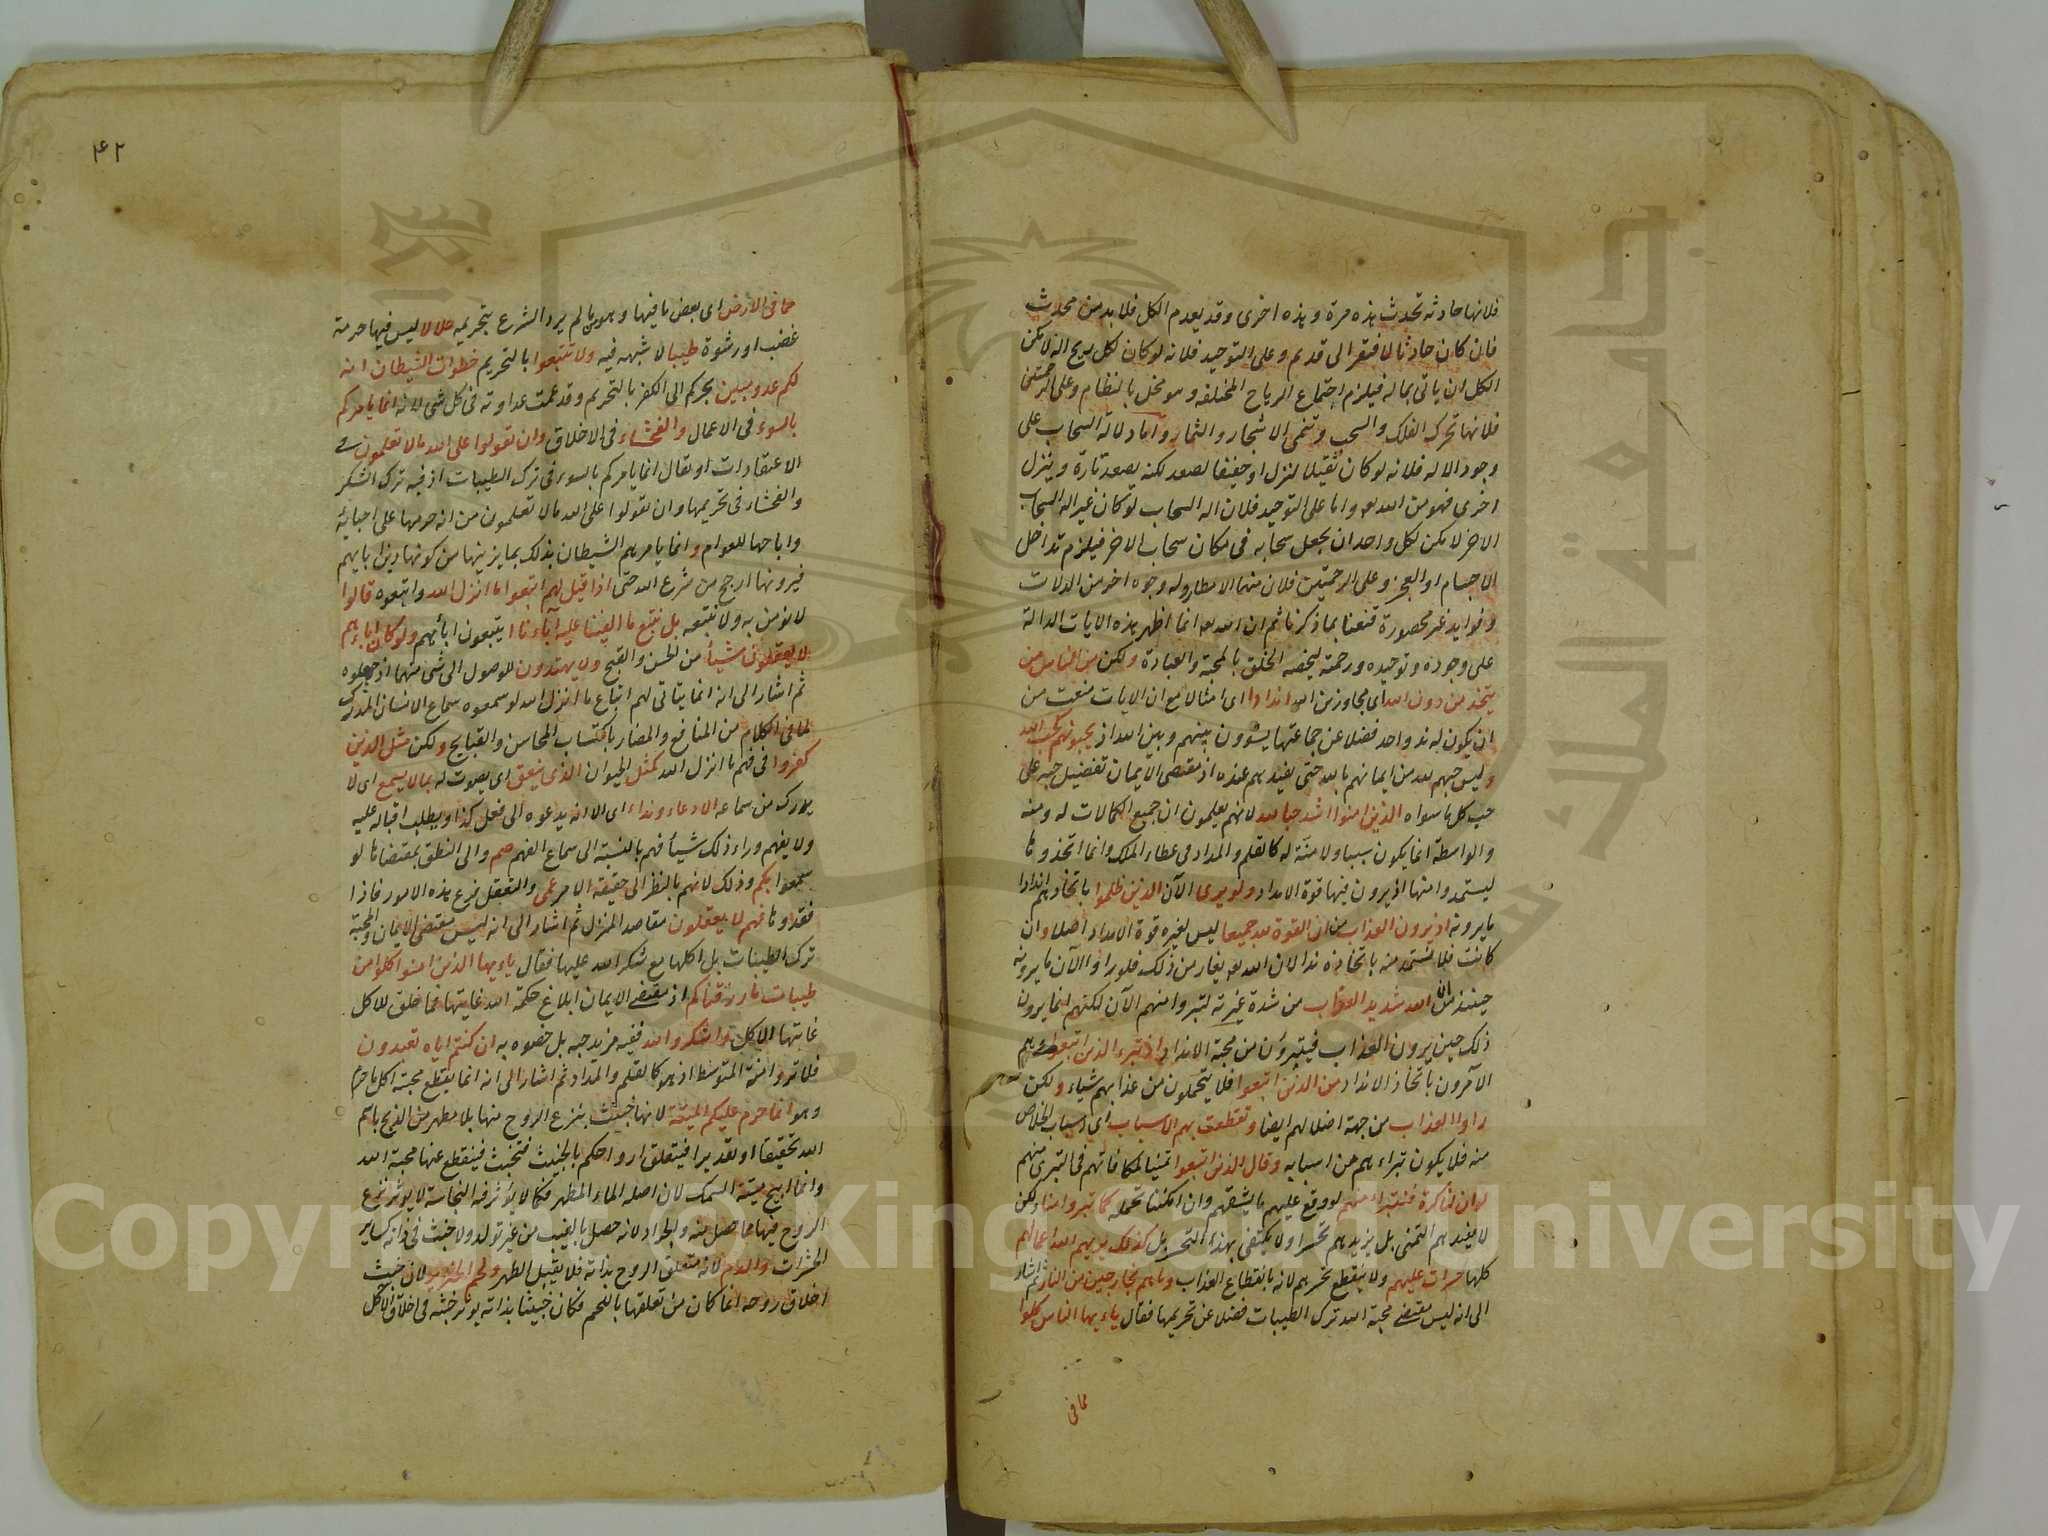 فلانها حادثه تحدث هذه مرة وهذه اخرى وقد يعدم الكل فلا بد من محدث
فان كان حادثا لافتقر الى قديم وعلى التوحيد فلانه لو كان لكل ريح اله لامكن
الكل ان ياتى بماله فيلزم اجتماع الرياح المختلفه وهو مخل بالنظام وعلى الرحمتين
فلانها تحرك الفلك والسحب وتنمى الاشجار والثمار واما دلالة السحاب على
وجود الاله فلانه لو كان ثقيلا لنزل او خفيفا لصعد لكنه يصعد تارة وينزل
اخرى فهو من الله تعالى واما على التوحيد فلان اله السحاب لو كان غير اله السحاب
الاخر لامكن لكل واحد ان يجعل سحابه فى مكان سحاب الاخر فيلزم تداخل
الاجسام او العجز وعلى الرحمتين فلان منها الامطار وله وجوه اخر من الدلالات
وفوايد غير محصورة قنعنا بما ذكرنا ثم ان الله تعالى انما اظهر هذه الايات الدالة
على وجوده وتوحيده ورحمته ليخصه الخلق بالمحبة والعبادة ولكن من الناس من
يتخذ من دون الله اى مجاوز من الله اندادا اى امثالا مع ان الايات منعت من
ان يكون له ند واحد فضلا عن جماعتها يسوون بينهم وبين الله اذ يحبونهم كحب الله
وليس حبهم لله من ايمانهم بالله حتى يفيدهم عنده اذ مقتضى الايمان تفضيل حبه على
حب كل ما سواه الذين امنوا اشد حبا لله لانهم يعلمون ان جميع الكمالات له ومنه
والواسطة انما يكون سببا ولا منة له كالقلم والمداد فى عطاء الملك وانما اتخذوها
ليستمدوا منها اذ يرون فيها قوة الامداد ولو يرى الآن الذين ظلموا باتخاذهم اندادا
ما يرونه اذ يرون العذاب من ان القوة لله جميعا ليس لغيره قوة الامداد اصلا وان
كانت فلا يستمد منه باتخاذه ندا لان الله تعالى يغار من ذلك فلو راوا الآن ما يرونه
حينئذ من ان الله شديد العقاب من شدة غيرته لتبروا منهم الآن لكنهم انما يرون
ذلك حين يرون العذاب فيتبرؤن من محبة الانداد اذ تبرء الذين اتبعوا وهم
الآمرون باتخاذ الانداد من الذين اتبعوا فلا يتحملون من عذابهم شياء ولكن
راوا العذاب من جهة اضلالهم ايضا وتقطعت بهم الاسباب اى اسباب الخلاص
منه فلا يكون تبراءهم من اسبابه وقال الذين اتبعوا تمنيا لمكافاتهم فى التبرى منهم
لو ان لنا كرة فنتبراء منهم لو وقع عليهم ما يشقهم وان امكننا تحمله كما تبروا منا ولكن
لا يفيدهم التمنى بل يزيدهم تحسرا ولا يكتفى بهذا التحسر بل كذلك يريهم الله اعمالهم
كلها حسرات عليهم ولا ينقطع تحسرهم لانه بانقطاع العذاب وما هم بخارجين من النار ثم اشار
الى انه ليس مقتضى محبة الله ترك الطيبات فضلا عن تحريمها فقال ياءيها الناس كلوا
مما فى
٤٢
مما فى الارض اى بعض ما فيها وهو ما لم يرد الشرع بتحريمه حلالا ليس فيها حرمة
غضب او رشوة طيبا لا شبهه فيه ولا تتبعوا بالتحريم خطوات الشيطان انه
لكم عدو مبين يجركم الى الكفر بالتحريم وقد عمت عداوته فى كل شى لانه انما يامركم
بالسوء فى الاعمال والفحشاء فى الاخلاق وان تقولوا على الله ما لا تعلمون فى
الاعتقادات او يقال انما يامركم بالسوء فى ترك الطيبات اذ فيه ترك الشكر
والفحشاء فى تحريمها وان تقولوا على الله ما لا تعلمون من انه حرمها على احبائه
واباحها للعوام وانما يامرهم الشيطان بذلك بما يزينها من كونها دين ابايهم
فيرونها ارجح من شرع الله حتى اذا قيل لهم اتبعوا ما انزل الله واتبعوه قالوا
لا نومن به ولا نتبعه بل نتبع ما الفينا عليه آباءنا ايتبعون ابائهم ولو كان اباءهم
لا يعقلون شيئا من الحسن والقبح ولا يهتدون للوصول الى شى منهما اذ جعلوه
ثم اشار الى انه انما يتاتى لهم اتباع ما انزل الله لو سمعوه سماع الانسان المدرك
لما فى الكلام من المنافع والمضار باكتساب المحاسن والقبايح ولكن مثل الذين
كفروا فى فهم ما انزل الله كمثل الحيوان الذى ينعق اى يصوت له بما لا يسمع اى لا
يدرك من سماعه الا دعاء ونداء اى الا انه يدعوه الى فعل كذا ويطلب اقباله عليه
ولا يفهم وراء ذلك شيأ فهم بالنسبة الى سماع الفهم صم والى النطق بمقتضاها لو
سمعوا بكم وذلك لانهم بالنظر الى حقيقة الامر عمى والتعقل فرع هذه الامور فاذا
فقدوها فهم لا يعقلون مقاصد المنزل ثم اشار الى انه ليس مقتضى الايمان والمحبة
ترك الطيبات بل اكلها مع شكر الله عليها فقال ياءيها الذين امنوا كلوا من
طيبات ما رزقناكم اذ مقتضى الايمان ابلاغ حكمة الله غايتها فما خلق للاكل
غايتها الاكل واشكروا الله ففيه مزيد حبه بل خصوه به ان كنتم اياه تعبدون
فلا تروا منة المتوسط اذ هو كالقلم والمداد ثم اشار الى انه انما يقطع محبته اكل ما حرم
وهو انما حرم عليكم الميتة لانها خبثت بنزع الروح منها بلا مطهر من الذبح باسم
الله تحقيقا او تقديرا فيتعلق ارواحكم بالخبيث فتخبث فينقطع عنها محبة الله
وانما ابيح ميتة السمك لان اصله الماء المطهر فكما لا يؤثر فيه النجاسة لا يوثر نزع
الروح فيها مما حصل منه والجراد لانه حصل بالغيب من غير تولد ولا خبث فى ذاته كساير
الحشرات والدم لانه متعلق الروح بذاته فلا يقبل الطهر ولحم الخنزير لان خبث
اخلاق روحه انما كان من تعلقها بااللحم فكان خبيثا بذاته يوثر خبثه فى اخلاق الاكل
Copyright © King Saud University
جامعة الملك